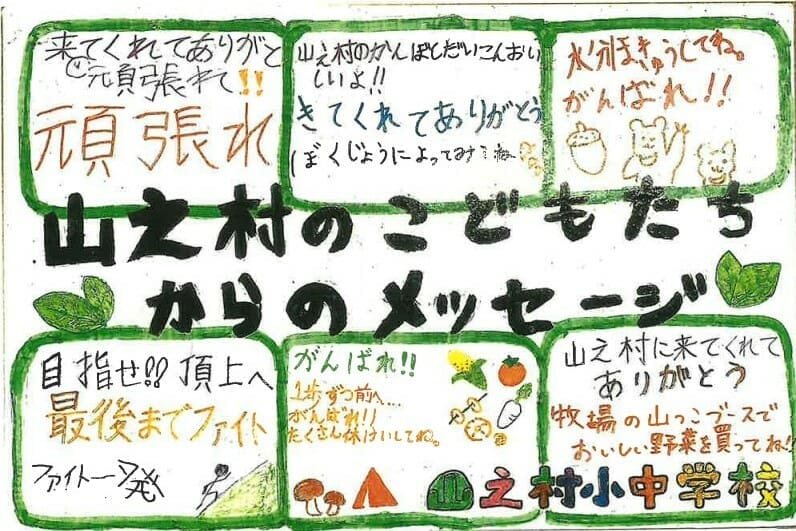 来てくれてありがと
う元頁張れて!!
頑張れ
山之村のかんぼしだいこんおい
しいよ!!
きてくれてありがとう
ぼくじょうによってみてね
水分ほきゅうしてね。
がんばれ!!
山之村のこどもたち
からのメッセージ
目指せ!!頂上へ
最後までファイト
ファイト一発
がんばれ!!
1歩ずつ前へ...
がんばれ!!
たくさん休けいしてね。
山之村に来てくれて
ありがとう
牧場の山っこブースで
おいしい野菜を買ってね!!
山之村小中学校